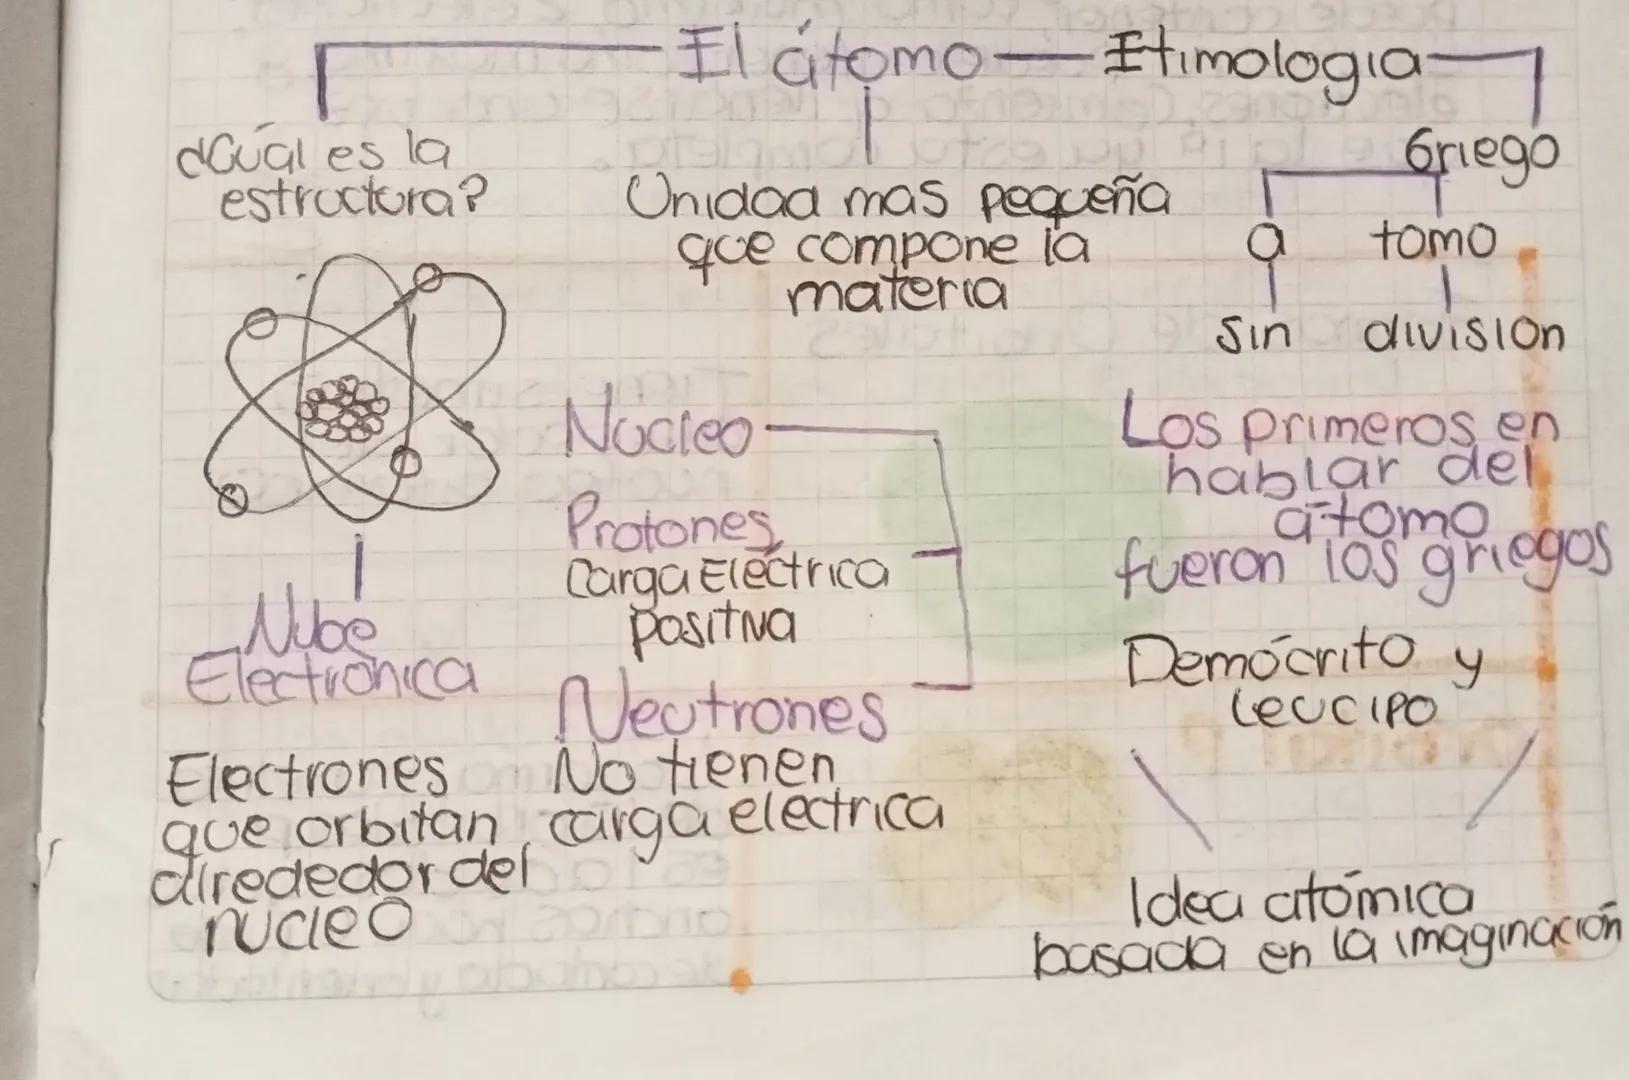 El átomo
Etimologia
Griego
a tomo
sin división
¿Cuál es la
estructura?
Unidad mas pequeña
que compone la
materia
Nucleo
Protones
Carga Eléctrica
positiva
Neutrones
No tienen
carga electrica
Nube
Electrónica
Electrones
que orbitan
alrededor del
nucleo
Los primeros en
hablar del
átomo
fueron los griegos
Demócrito y
Leucipo
Idea atómica
basada en la imaginación